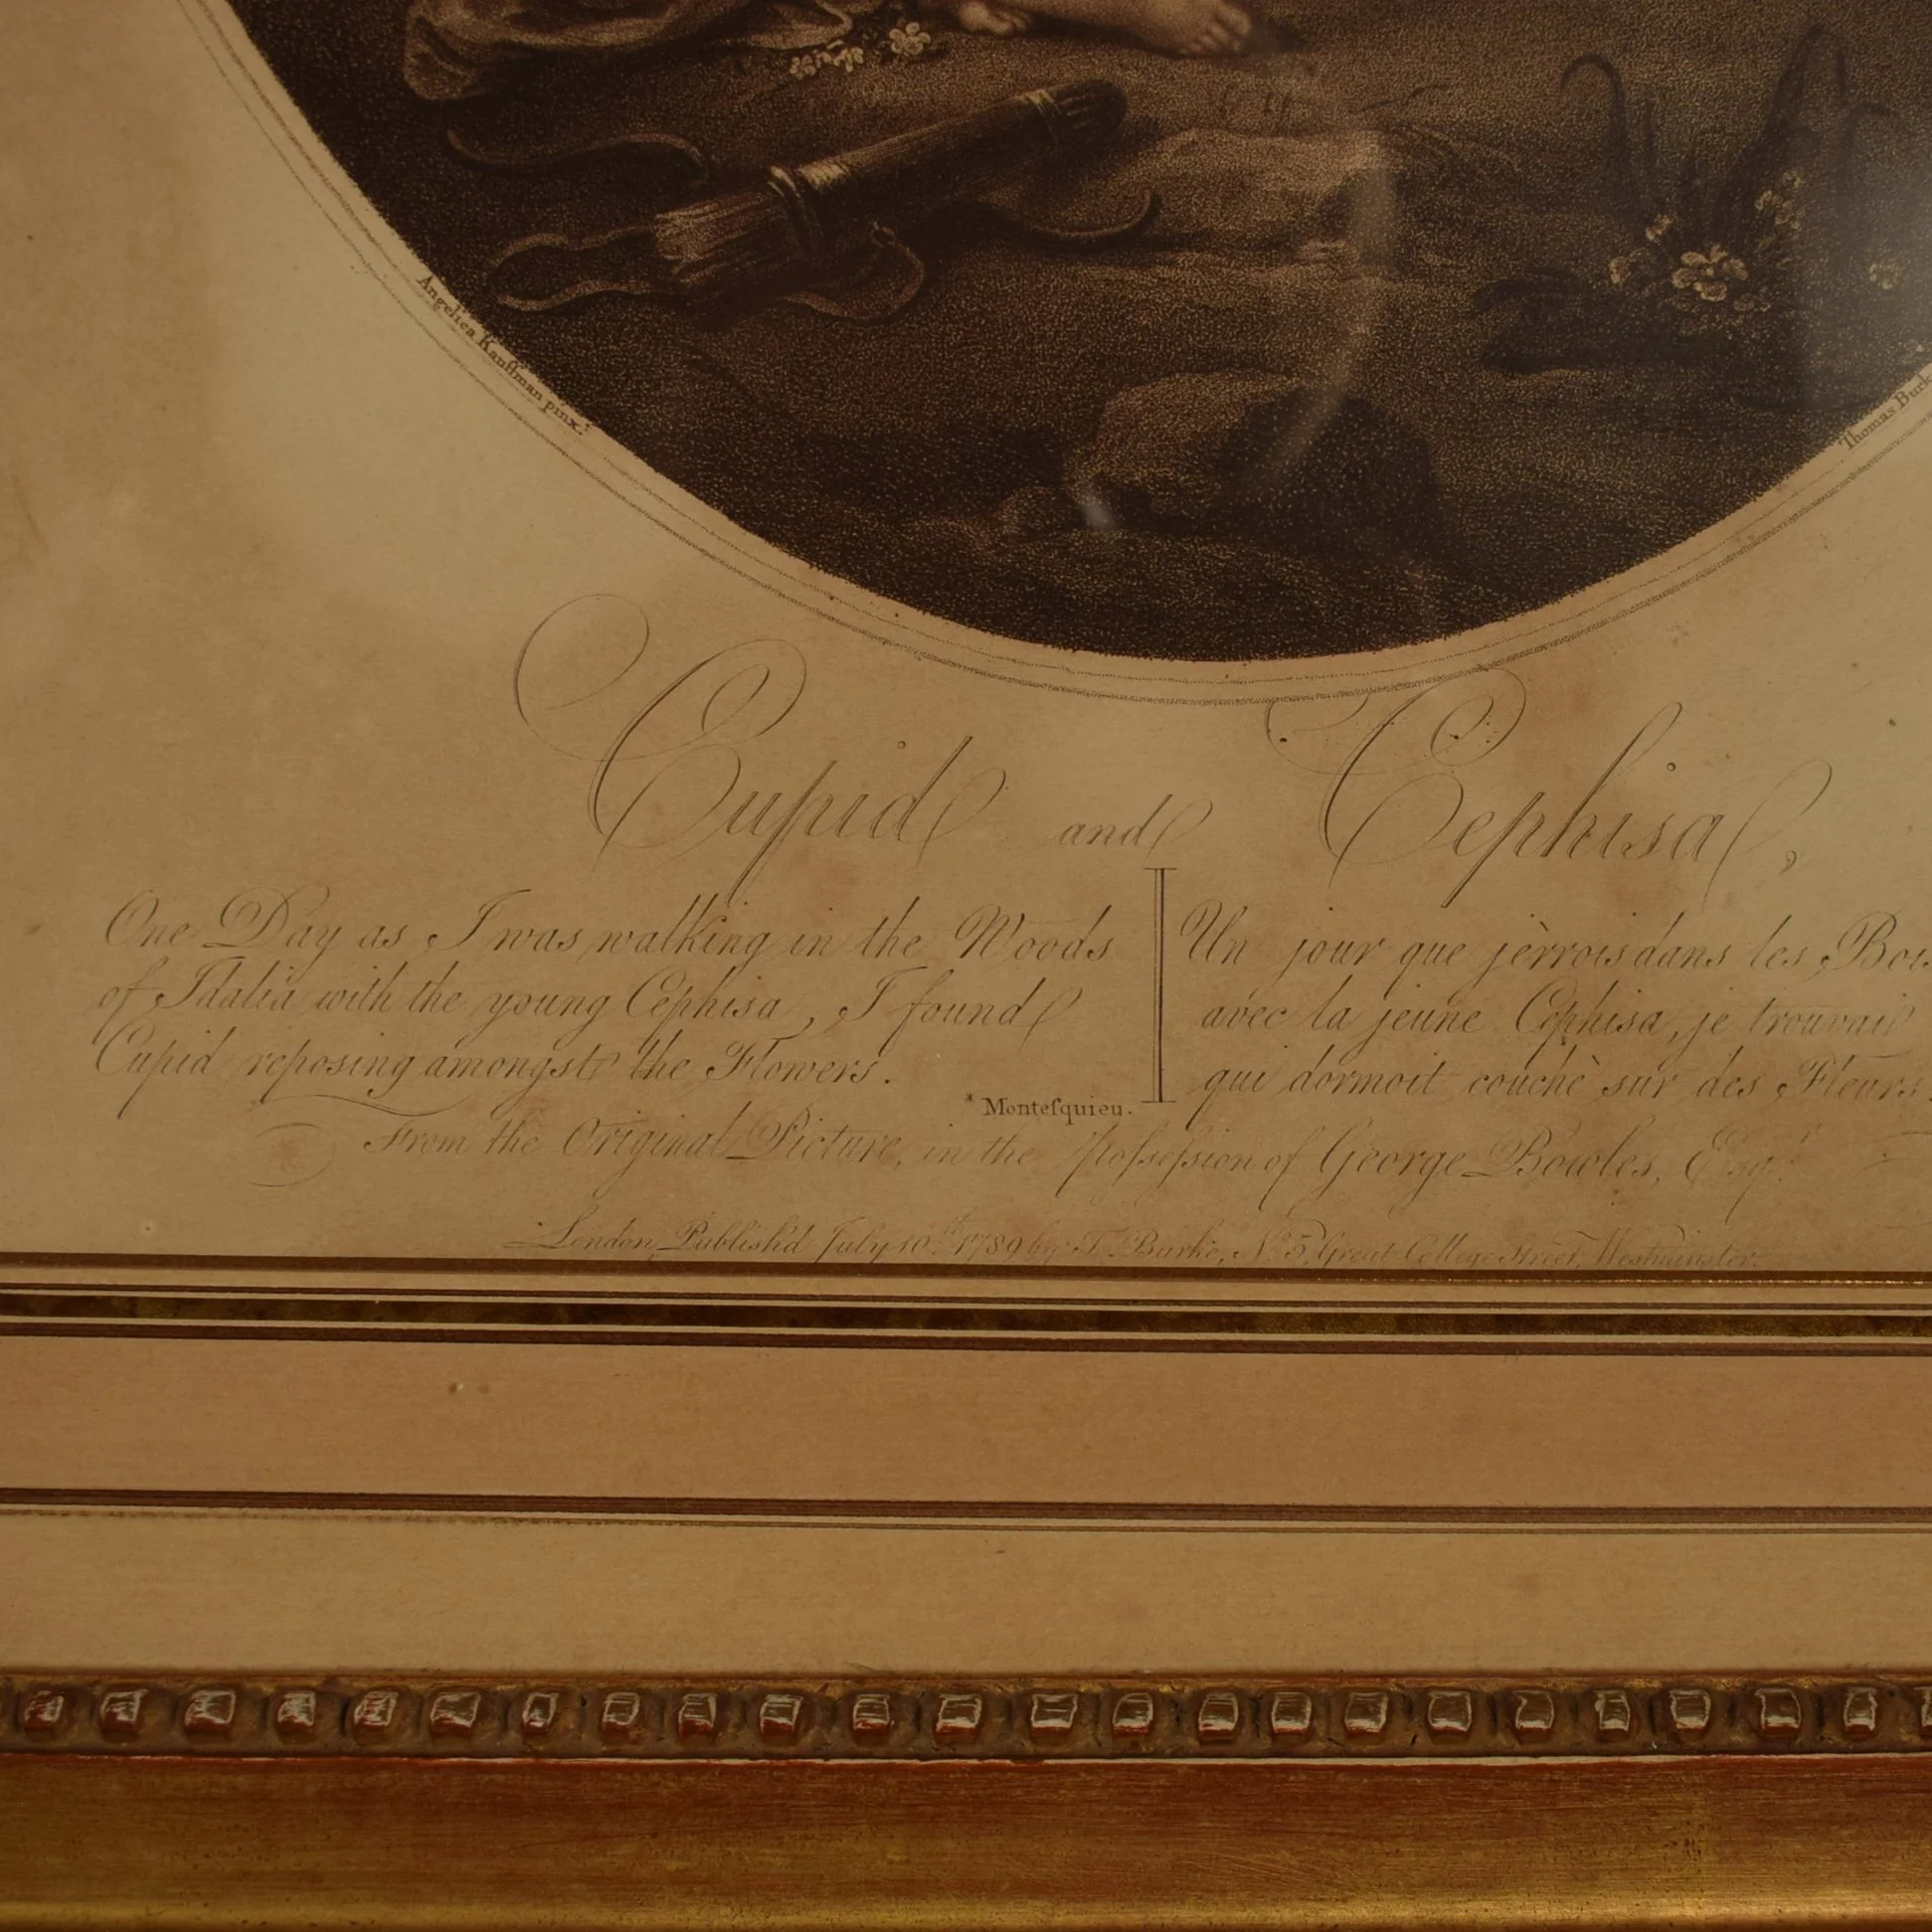 Angelica Kauffman pinx.t
Thomas Burk
Cupid and Cephisa,
One Day as I was walking in the Woods
of Idalia with the young Cephisa, I found
Cupid reposing amongst the Flowers.
*Monteſquieu.
Un jour que jèrrois dans les Boi
avec la jeune Cephisa, je trouvai
qui dormoit couchè sur des Fleurs.
From the Original Picture, in the poſseſsion of George Bowles, Esqr.
London, Publish'd July 10th 1789 by T. Burke, No. 5, Great College Street, Westminster.